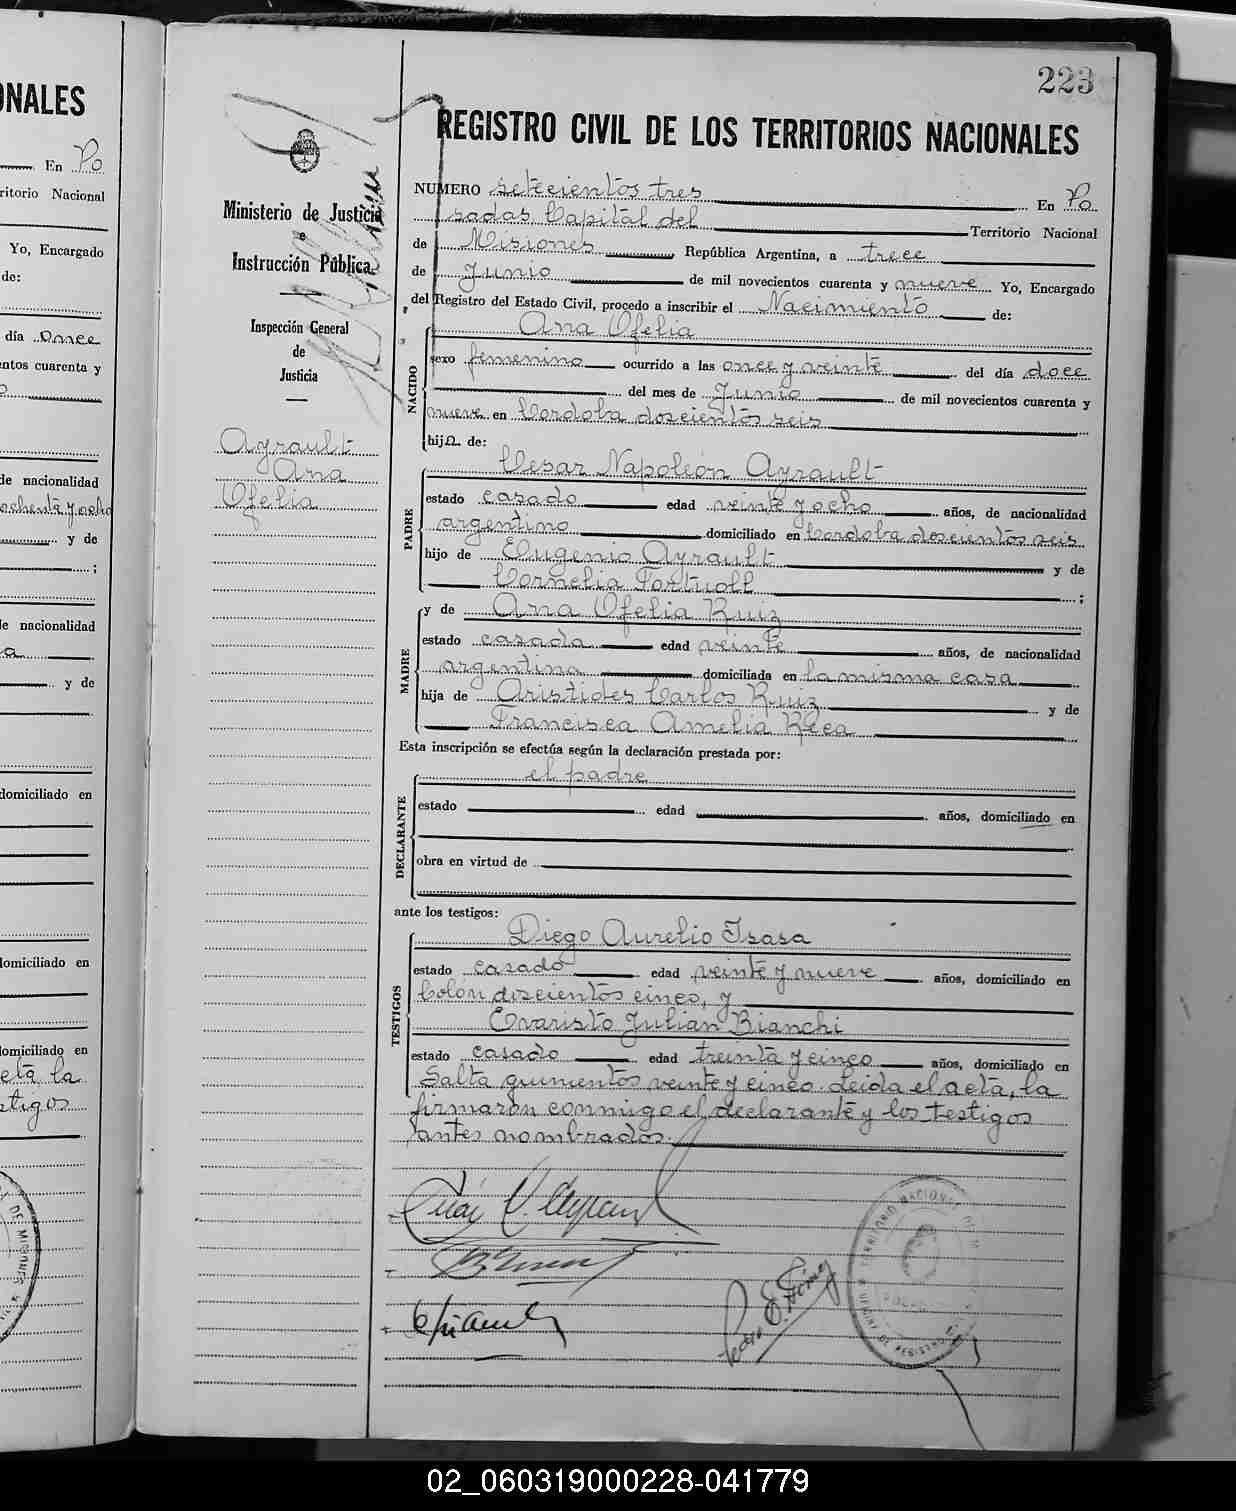 223
REGISTRO CIVIL DE LOS TERRITORIOS NACIONALES
Ministerio de Justicia
e
Instrucción Pública
Inspección General
de
Justicia
Ayrault
Ana
Ofelia
NUMERO setecientos tres En Po
sadas Capital del Territorio Nacional
de Misiones República Argentina, a trece
de Junio de mil novecientos cuarenta y nueve Yo, Encargado
del Registro del Estado Civil, procedo a inscribir el Nacimiento de:
NACIDO
Ana Ofelia
sexo femenino ocurrido a las once y veinte del día doce
del mes de Junio de mil novecientos cuarenta y
nueve en Cordoba doscientos seis
hija de:
PADRE
Cesar Napoleón Ayrault
estado casado edad veinte y ocho años, de nacionalidad
argentino domiciliado en Cordoba doscientos seis
hijo de Eugenio Ayrault y de
Cornelia ;
MADRE
y de Ana Ofelia Ruiz
estado casada edad veinte años, de nacionalidad
argentina domiciliada en la misma casa
hija de Aristides Carlos Ruiz y de
Francisca Amelia
Esta inscripción se efectúa según la declaración prestada por:
DECLARANTE
el padre
estado edad años, domiciliado en
obra en virtud de
ante los testigos:
TESTIGOS
Diego Aurelio Isasa
estado casado edad veinte y nueve años, domiciliado en
Colón doscientos cinco, y
Evaristo Julian Bianchi
estado casado edad treinta y cinco años, domiciliado en
Salta quinientos veinte y cinco. Leida el acta, la
firmaron conmigo el declarante y los testigos
antes nombrados.
ONALES
En Po
ritorio Nacional
Yo, Encargado
de:
día once
entos cuarenta y
de nacionalidad
ochenta y ocho
y de
;
de nacionalidad
y de
domiciliado en
domiciliado en
domiciliado en
cta la
stigos
02_060319000228-041779